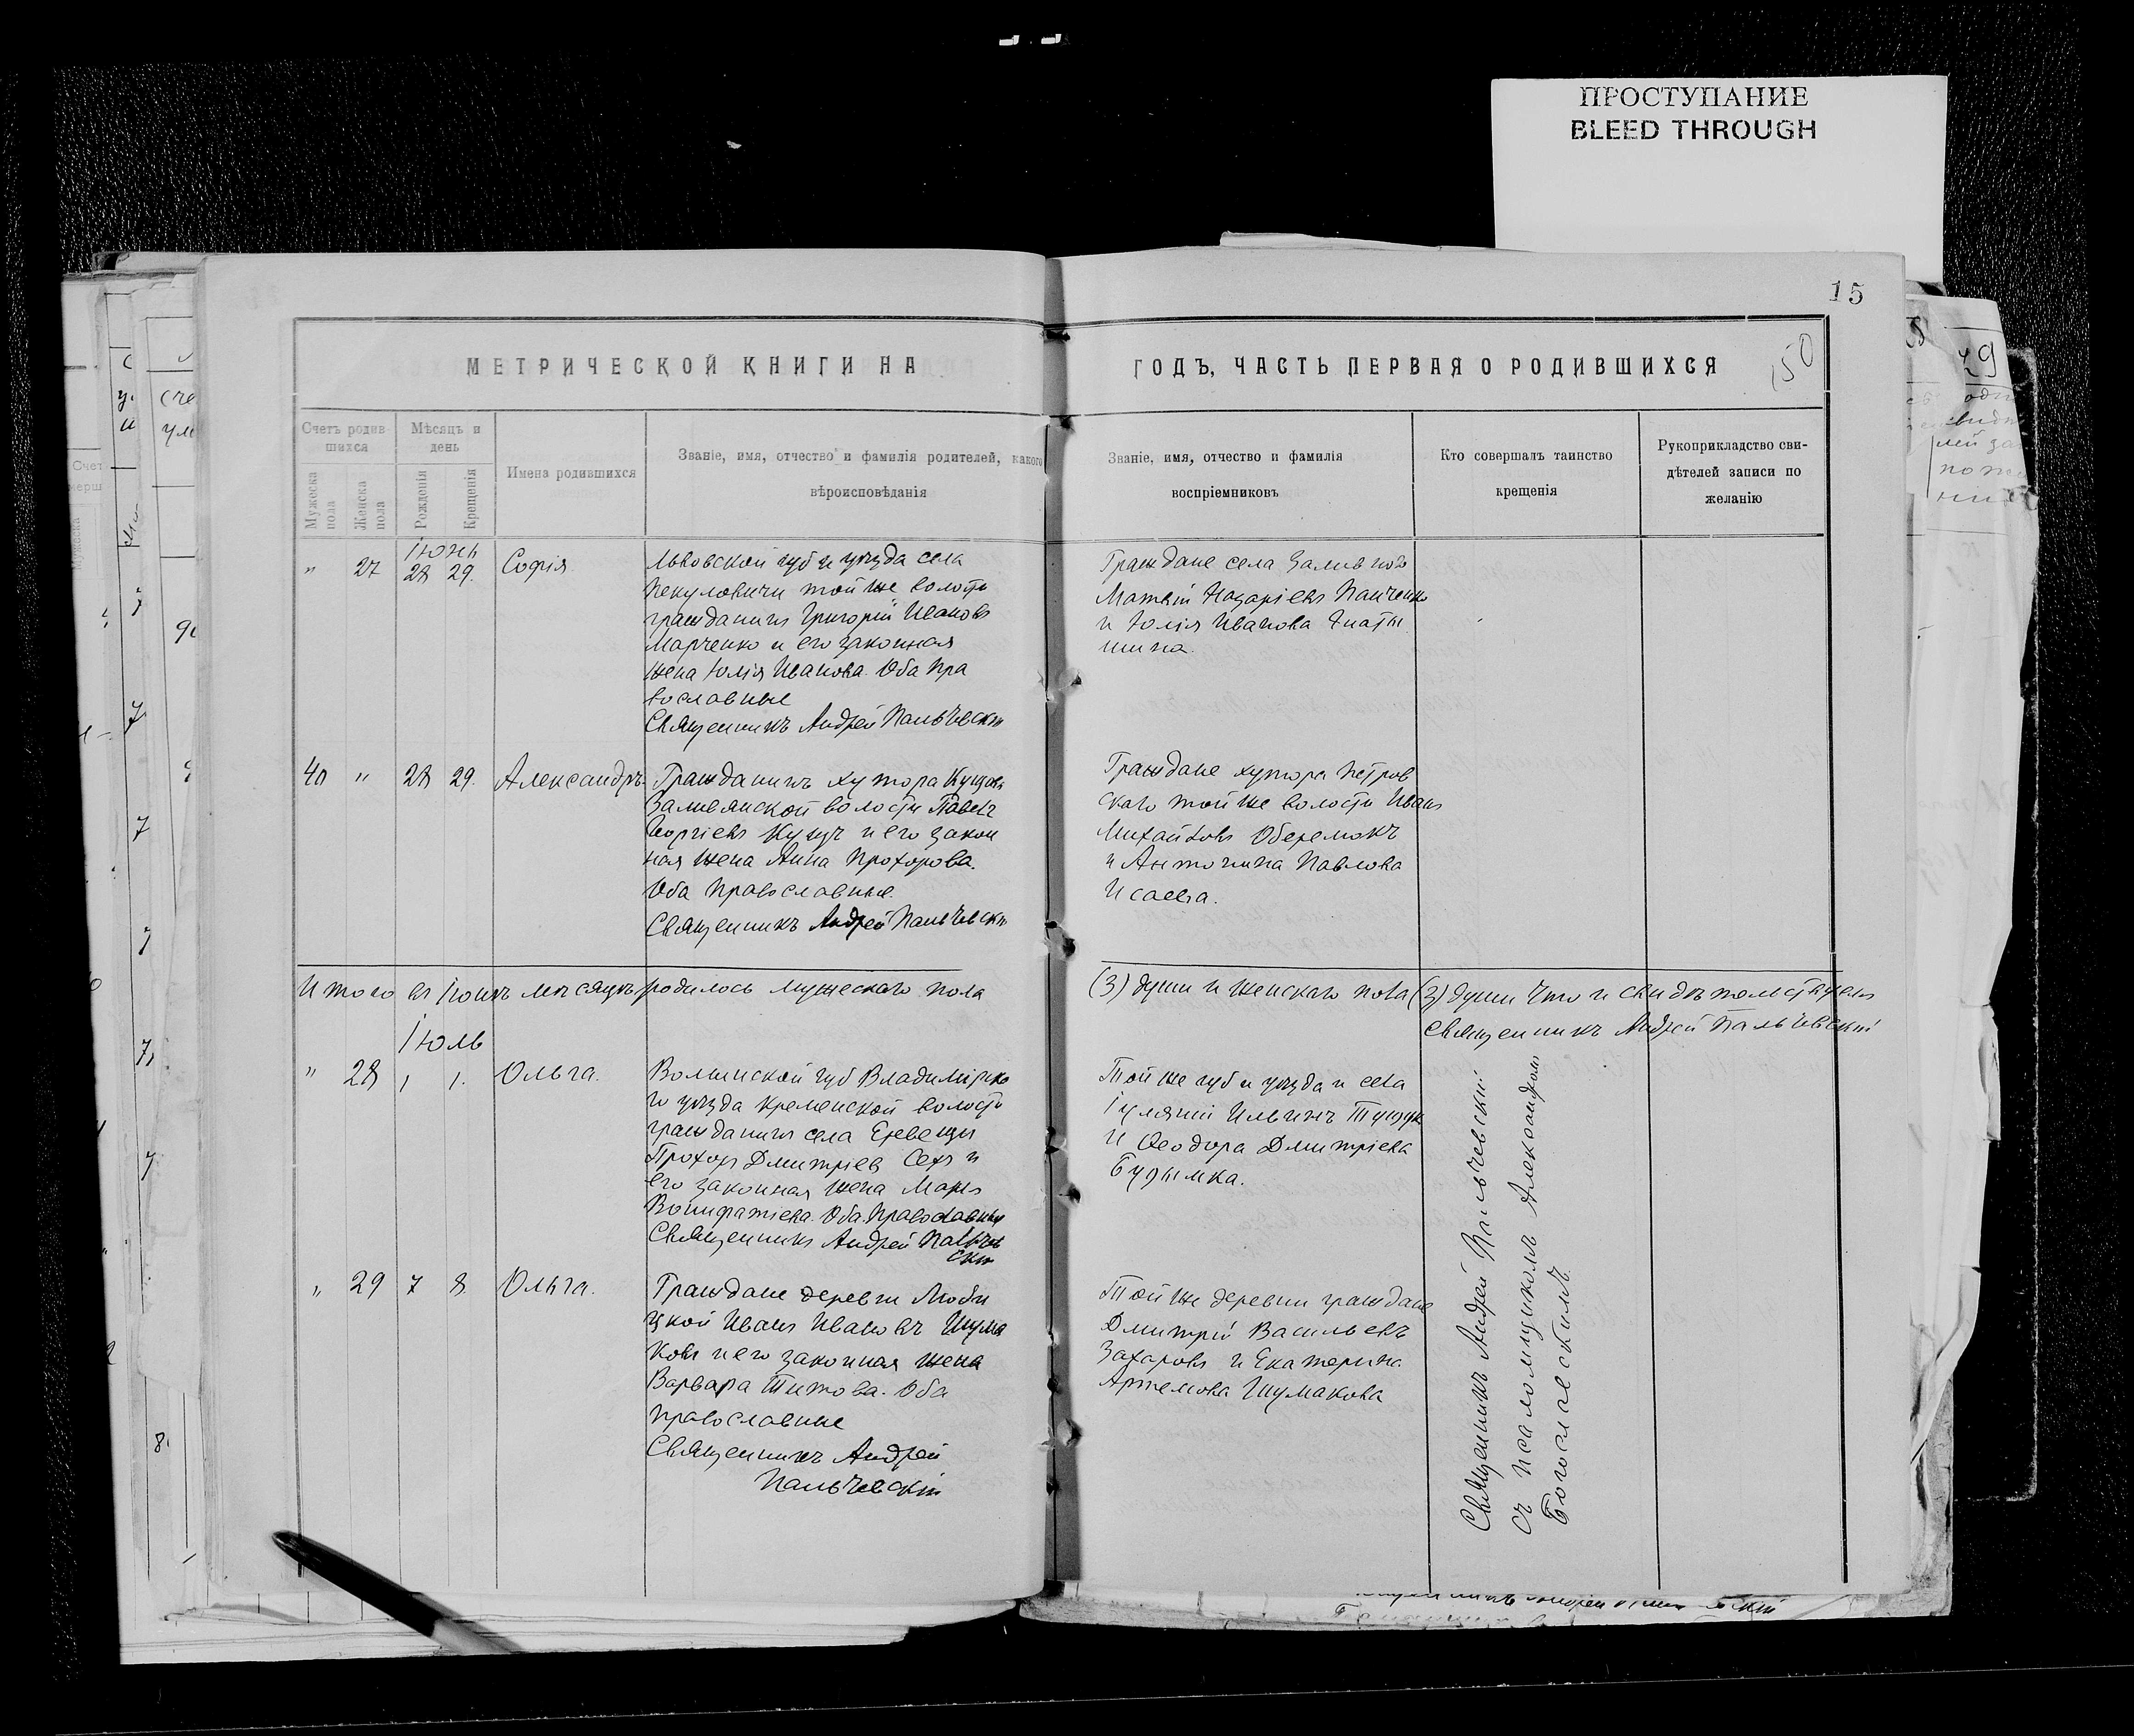 ПРОСТУПАНИЕ
BLEED THROUGH
15
150
МЕТРИЧЕСКОЙ КНИГИ НА
ГОДЪ, ЧАСТЬ ПЕРВАЯ О РОДИВШИХСЯ
Счетъ родив-
шихся
Мужеска пола
Женска пола
Мѣсяцъ и
день
Рожденія
Крещенія
Имена родившихся
Званіе, имя, отчество и фамилія родителей, какого
вѣроисповѣданія
Званіе, имя, отчество и фамилія
воспріемниковъ
Кто совершалъ таинство
крещенія
Рукоприкладство сви-
дѣтелей записи по
желанію
Іюнь
" 27 28 29. Софія
Львовской губ и уѣзда села
Пекуловичи той же волости
гражданинъ Григорій Ивановъ
Марченко и его законная
жена Юлія Иванова. Оба пра
вославные
Священникъ Андрей Пальчевскій
Граждане села Заливного
Матвій Назаріевъ Панченко
и Юлія Иванова
шина.
40 " 28 29. Александръ
Гражданинъ хутора Куцова
Заливянской волости Павелъ
Георгіевъ Куцъ и его закон
ная жена Анна Прохорова.
Оба православные.
Священникъ Андрей Пальчевскій
Граждане хутора Петров
скаго той же волости Иванъ
Михайловъ Оберемокъ
и Антонина Павлова
Исаева.
Итого въ Іюнѣ мѣсяцѣ родилось мужескаго пола
(3) души и женскаго пола (3) души что и свидѣтельствуемъ
Священникъ Андрей Пальчевскій
Іюль
" 28 1 1. Ольга.
Волынской губ Владимірско
го уѣзда Кременской волости
гражданинъ села
Прохоръ Дмитріев и
его законная жена Марія
Вонифатіева. Оба православные
Священникъ Андрей Пальчев
скій
Той же губ и уѣзда и села
Ильинъ
и Ѳеодора Дмитріева
" 29 7 8. Ольга.
Граждане деревни Люби
цкой Иванъ Ивановъ Шума
ковъ и его законная жена
Варвара Титова. Оба
православные
Священникъ Андрей
Пальчевскій
Той же деревни граждане
Дмитрій Васильевъ
Захаровъ и Екатерина
Артемова Шумакова
Священникъ Андрей Пальчевскій
съ псаломщикомъ Александромъ
Богославскимъ.